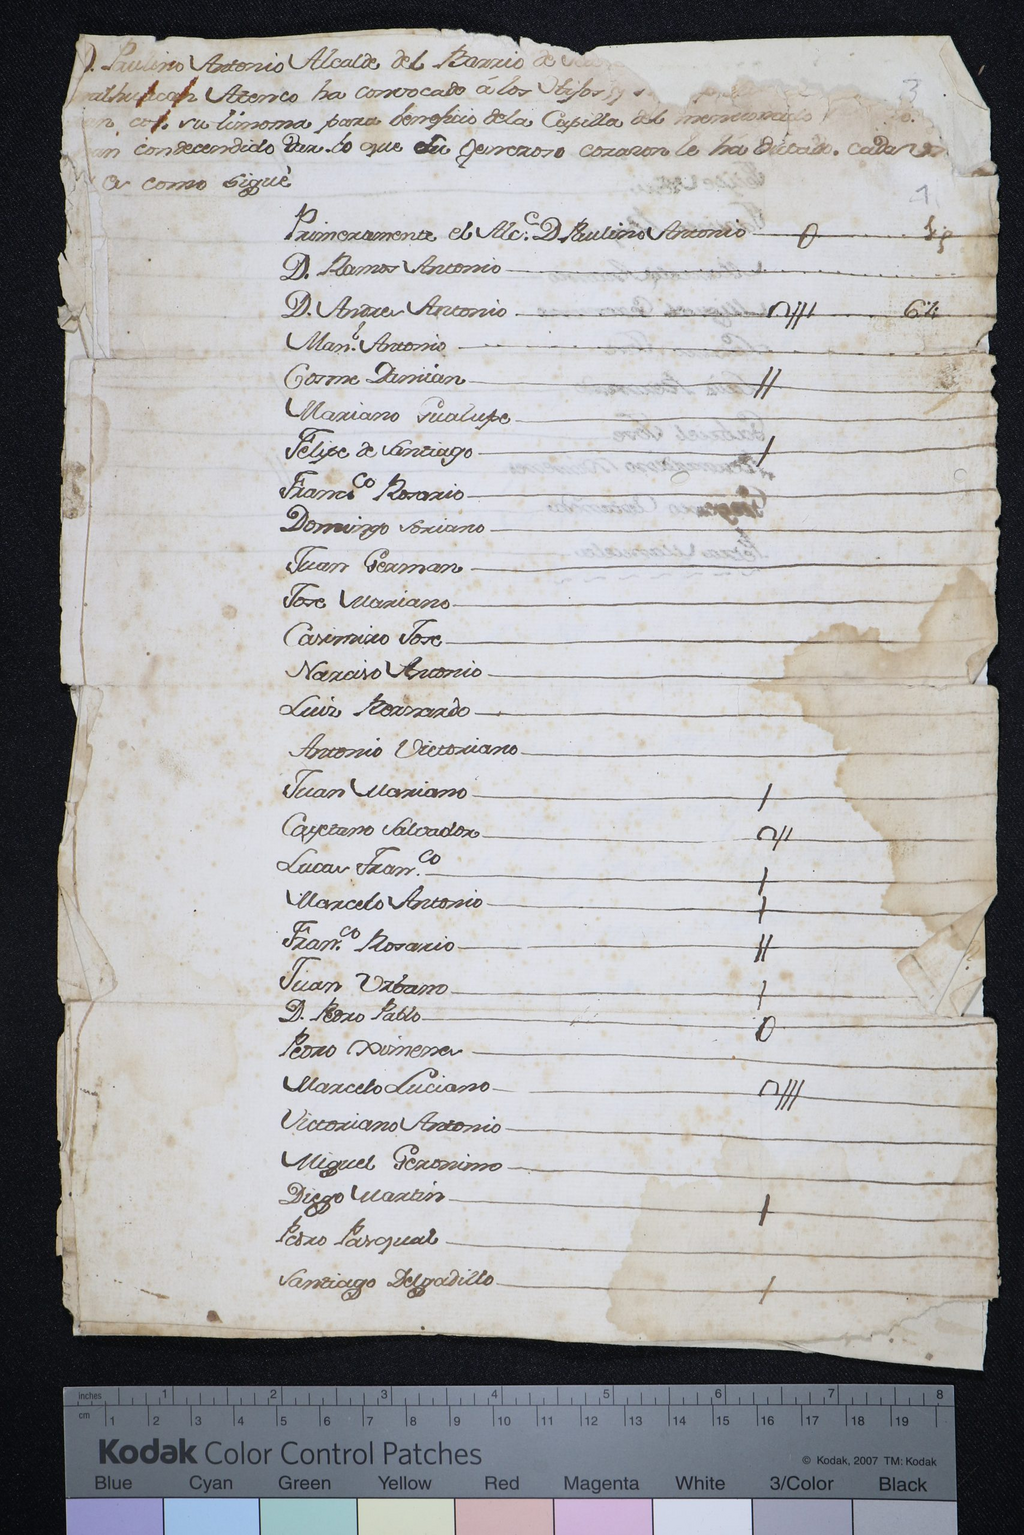 D. Paulino Antonio Alcalde del Barrio de
Atenco ha convocado á los Hijos y
su limosna para beneficio dela Capilla del mencionado
han condecendido dar lo que su generoso corazon le há dictado. cada
como sigue
Primeramente el Alc.e D. Paulino Antonio 0
D. Ramos Antonio
D. Andres Antonio 64
Man.l Antonio
Cosme Damian
Mariano Gualupe
Felipe de Santiago
Franc.co Rosario
Domingo Soriano
Juan German
Jose Mariano
Casimiro Jose
Narciso Antonio
Luis Bernardo
Antonio Victoriano
Juan Mariano
Cayetano Salvador
Lucas Fran.co
Marcelo Antonio
Fran.co Rosario
Juan Urbano
D. Pedro Pablo 0
Pedro Ximenes
Marcelo Luciano
Victoriano Antonio
Miguel Geronimo
Diego Martin
Pedro Pasqual
Santiago Delgadillo
inches 1 2 3 4 5 6 7 8
cm 1 2 3 4 5 6 7 8 9 10 11 12 13 14 15 16 17 18 19
Kodak Color Control Patches © Kodak, 2007 TM: Kodak
Blue Cyan Green Yellow Red Magenta White 3/Color Black